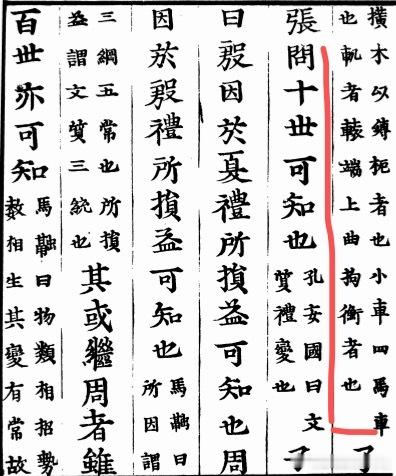 橫木以縛枙者也小車四馬車
也軏者轅端上曲拘衡者也
子
張問十世可知也
孔安國曰文
質禮變也
子
曰殷因於夏禮所損益可知也周
因於殷禮所損益可知也
馬融曰
所因謂
三綱五常也所損
益謂文質三統也
其或繼周者雖
百世亦可知
馬融曰物類相招勢
數相生其變有常故